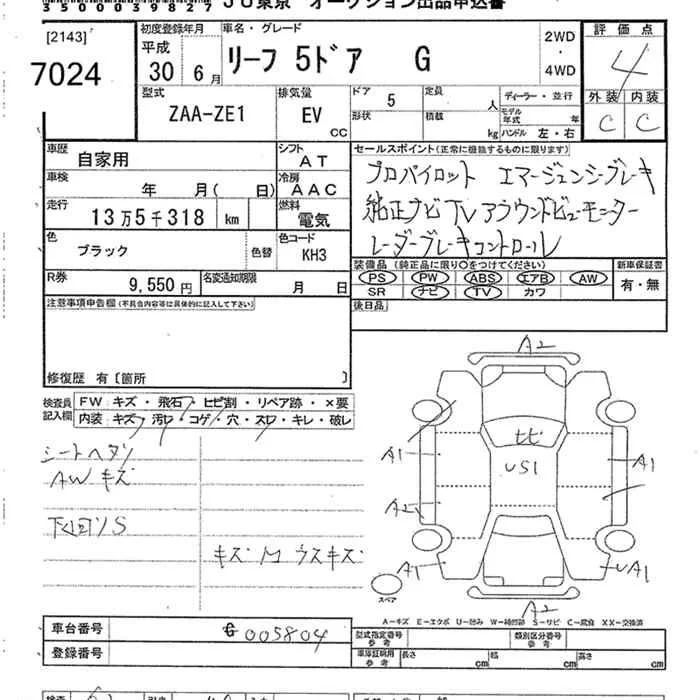 350003 9827 JU東京 オークション出品申込書
[2143]
7024
初度登録年月
平成
30年 6月
車名・グレード
リーフ 5ドア G
2WD
・
4WD
評価点
4
外装 内装
C C
型式
ZAA-ZE1
排気量
EV
CC
ドア
5
定員
人
形状
積載
kg
ディーラー・並行
モデル年式 年
ハンドル 左・右
車歴
自家用
シフト
AT
車検
年 月( 日)
冷房
AAC
走行
13万5千318 km
燃料
電気
色
ブラック
色替
色コード
KH3
R券
9,550円
名変通知期限
月 日
セールスポイント(正常に機能するものに限ります)
プロパイロット エマージェンシーブレーキ
純正ナビ TV アラウンドビューモニター
レーダーブレーキコントロール
装備品(純正品に限り○をつけてください)
PS PW ABS エアB AW
SR ナビ TV カワ
新車保証書
有・無
後日品
注意事項申告欄(不具合内容等は具体的に記入して下さい)
修復歴 有〔箇所 〕
検査員
記入欄
FW キズ・飛石・ヒビ割・リペア跡・×要
内装 キズ・汚れ・コゲ・穴・スレ・キレ・破レ
シートヘタリ
AW キズ
下回りS
キズ M ウスキズ
A2
A1
A2
A1
ヒビ
US1
A1
UA1
A2
スペア
A-キズ E-エクボ U-凹み W-補修跡 S-サビ C-腐食 XX-交換済
車台番号
005804
登録番号
型式指定番号
参考
類別区分番号
参考
車庫証明用
参考
長さ cm
幅 cm
高さ cm